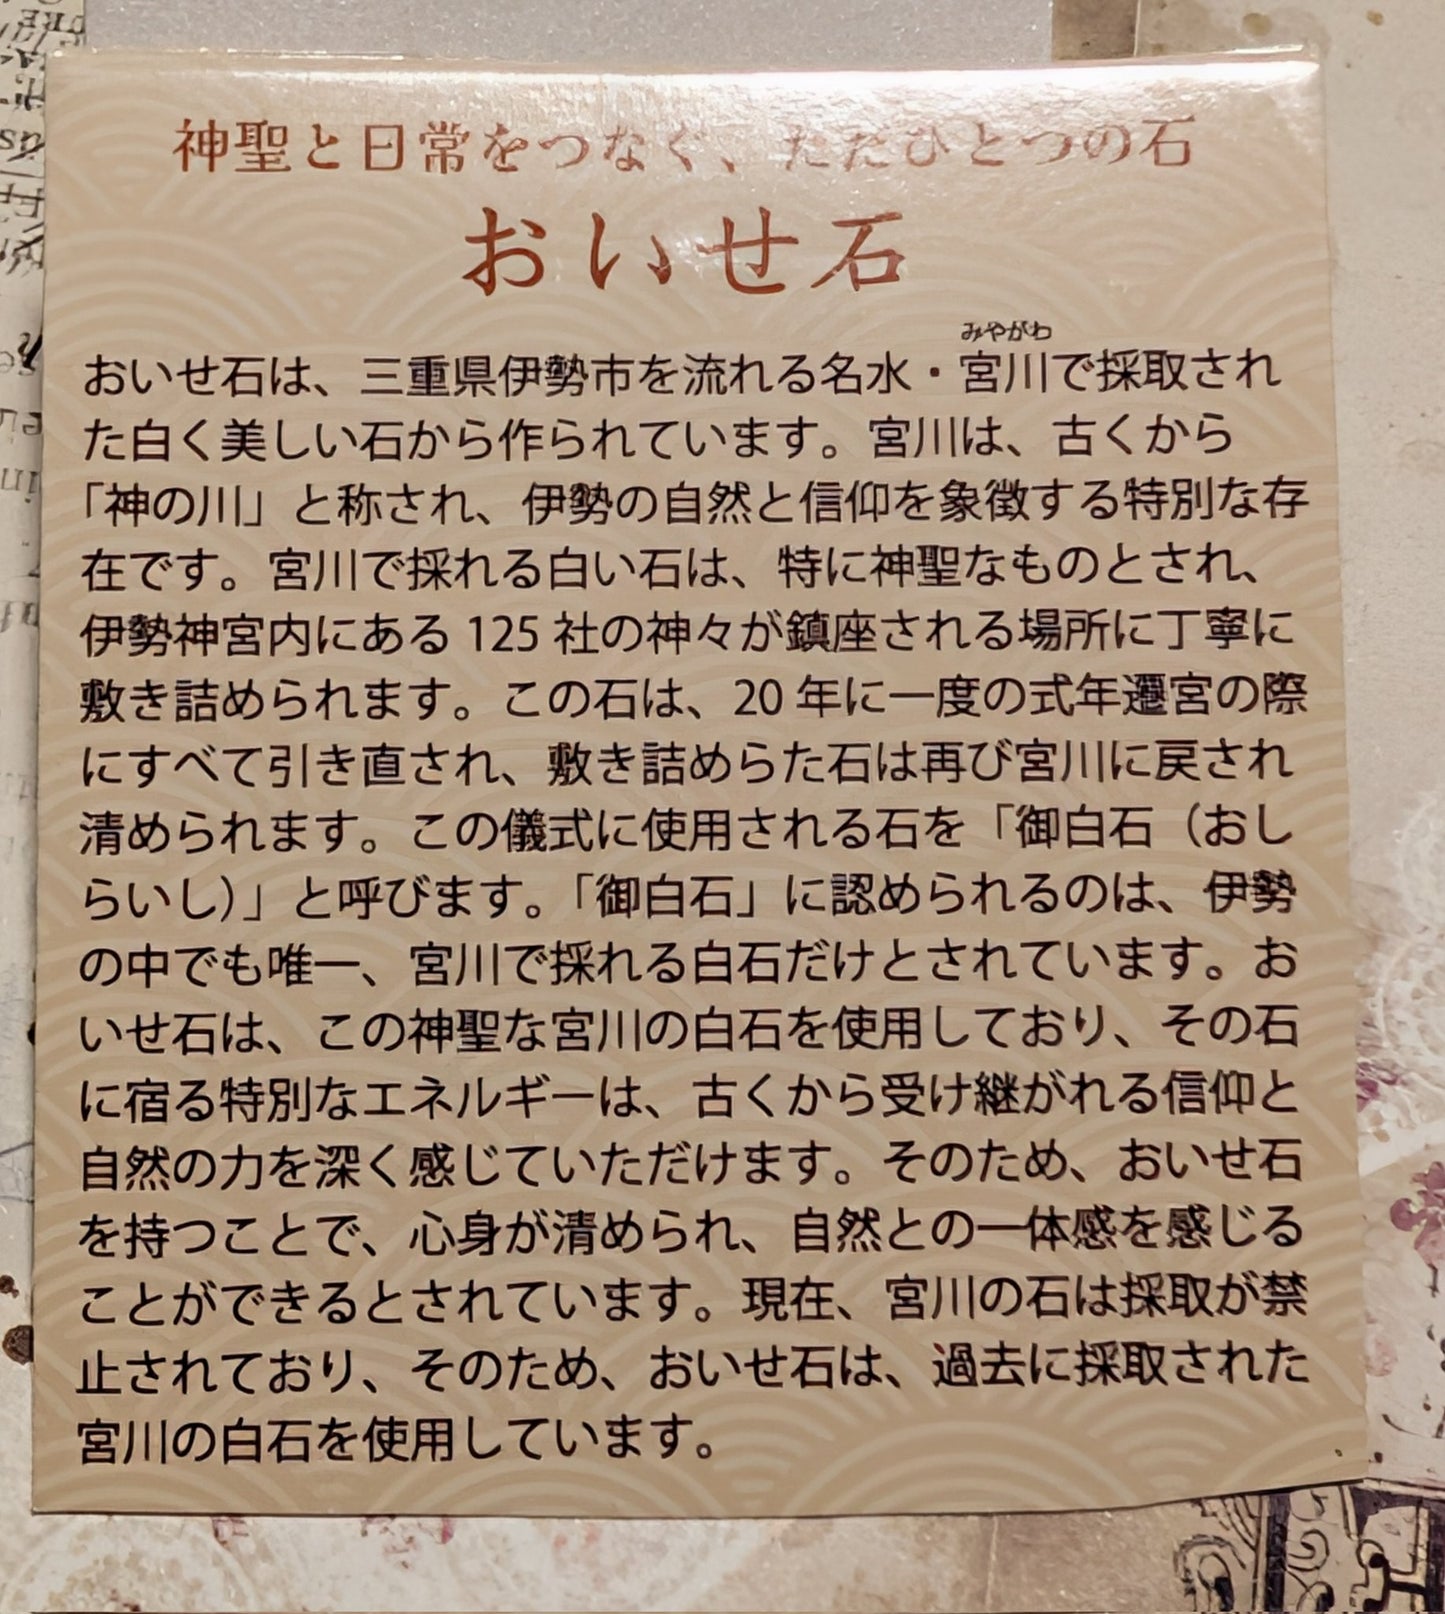 神聖と日常をつなぐ、ただひとつの石
おいせ石
みやがわ
おいせ石は、三重県伊勢市を流れる名水・宮川で採取され
た白く美しい石から作られています。宮川は、古くから
「神の川」と称され、伊勢の自然と信仰を象徴する特別な存
在です。宮川で採れる白い石は、特に神聖なものとされ、
伊勢神宮内にある 125 社の神々が鎮座される場所に丁寧に
敷き詰められます。この石は、20 年に一度の式年遷宮の際
にすべて引き直され、敷き詰めらた石は再び宮川に戻され
清められます。この儀式に使用される石を「御白石（おし
らいし）」と呼びます。「御白石」に認められるのは、伊勢
の中でも唯一、宮川で採れる白石だけとされています。お
いせ石は、この神聖な宮川の白石を使用しており、その石
に宿る特別なエネルギーは、古くから受け継がれる信仰と
自然の力を深く感じていただけます。そのため、おいせ石
を持つことで、心身が清められ、自然との一体感を感じる
ことができるとされています。現在、宮川の石は採取が禁
止されており、そのため、おいせ石は、過去に採取された
宮川の白石を使用しています。